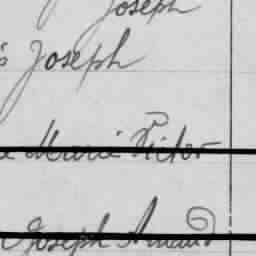 Joseph
Joseph
Marie Victor
Joseph Amand